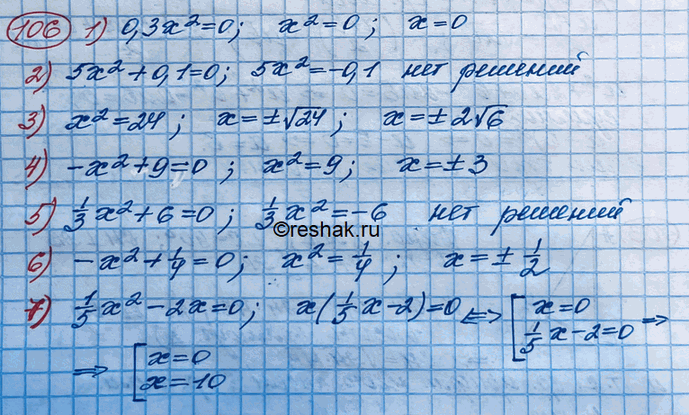 106 1) 0,3x²=0; x²=0; x=0
2) 5x²+0,1=0; 5x²=-0,1 нет решений
3) x²=24; x=±√24; x=±2√6
4) -x²+9=0; x²=9; x=±3
5) 1/3 x²+6=0; 1/3 x²=-6 нет решений
©reshak.ru
6) -x²+1/4=0; x²=1/4; x=±1/2
7) 1/5 x²-2x=0; x(1/5 x-2)=0 <=> [ x=0
1/5 x-2=0 =>
=> [ x=0
x=10